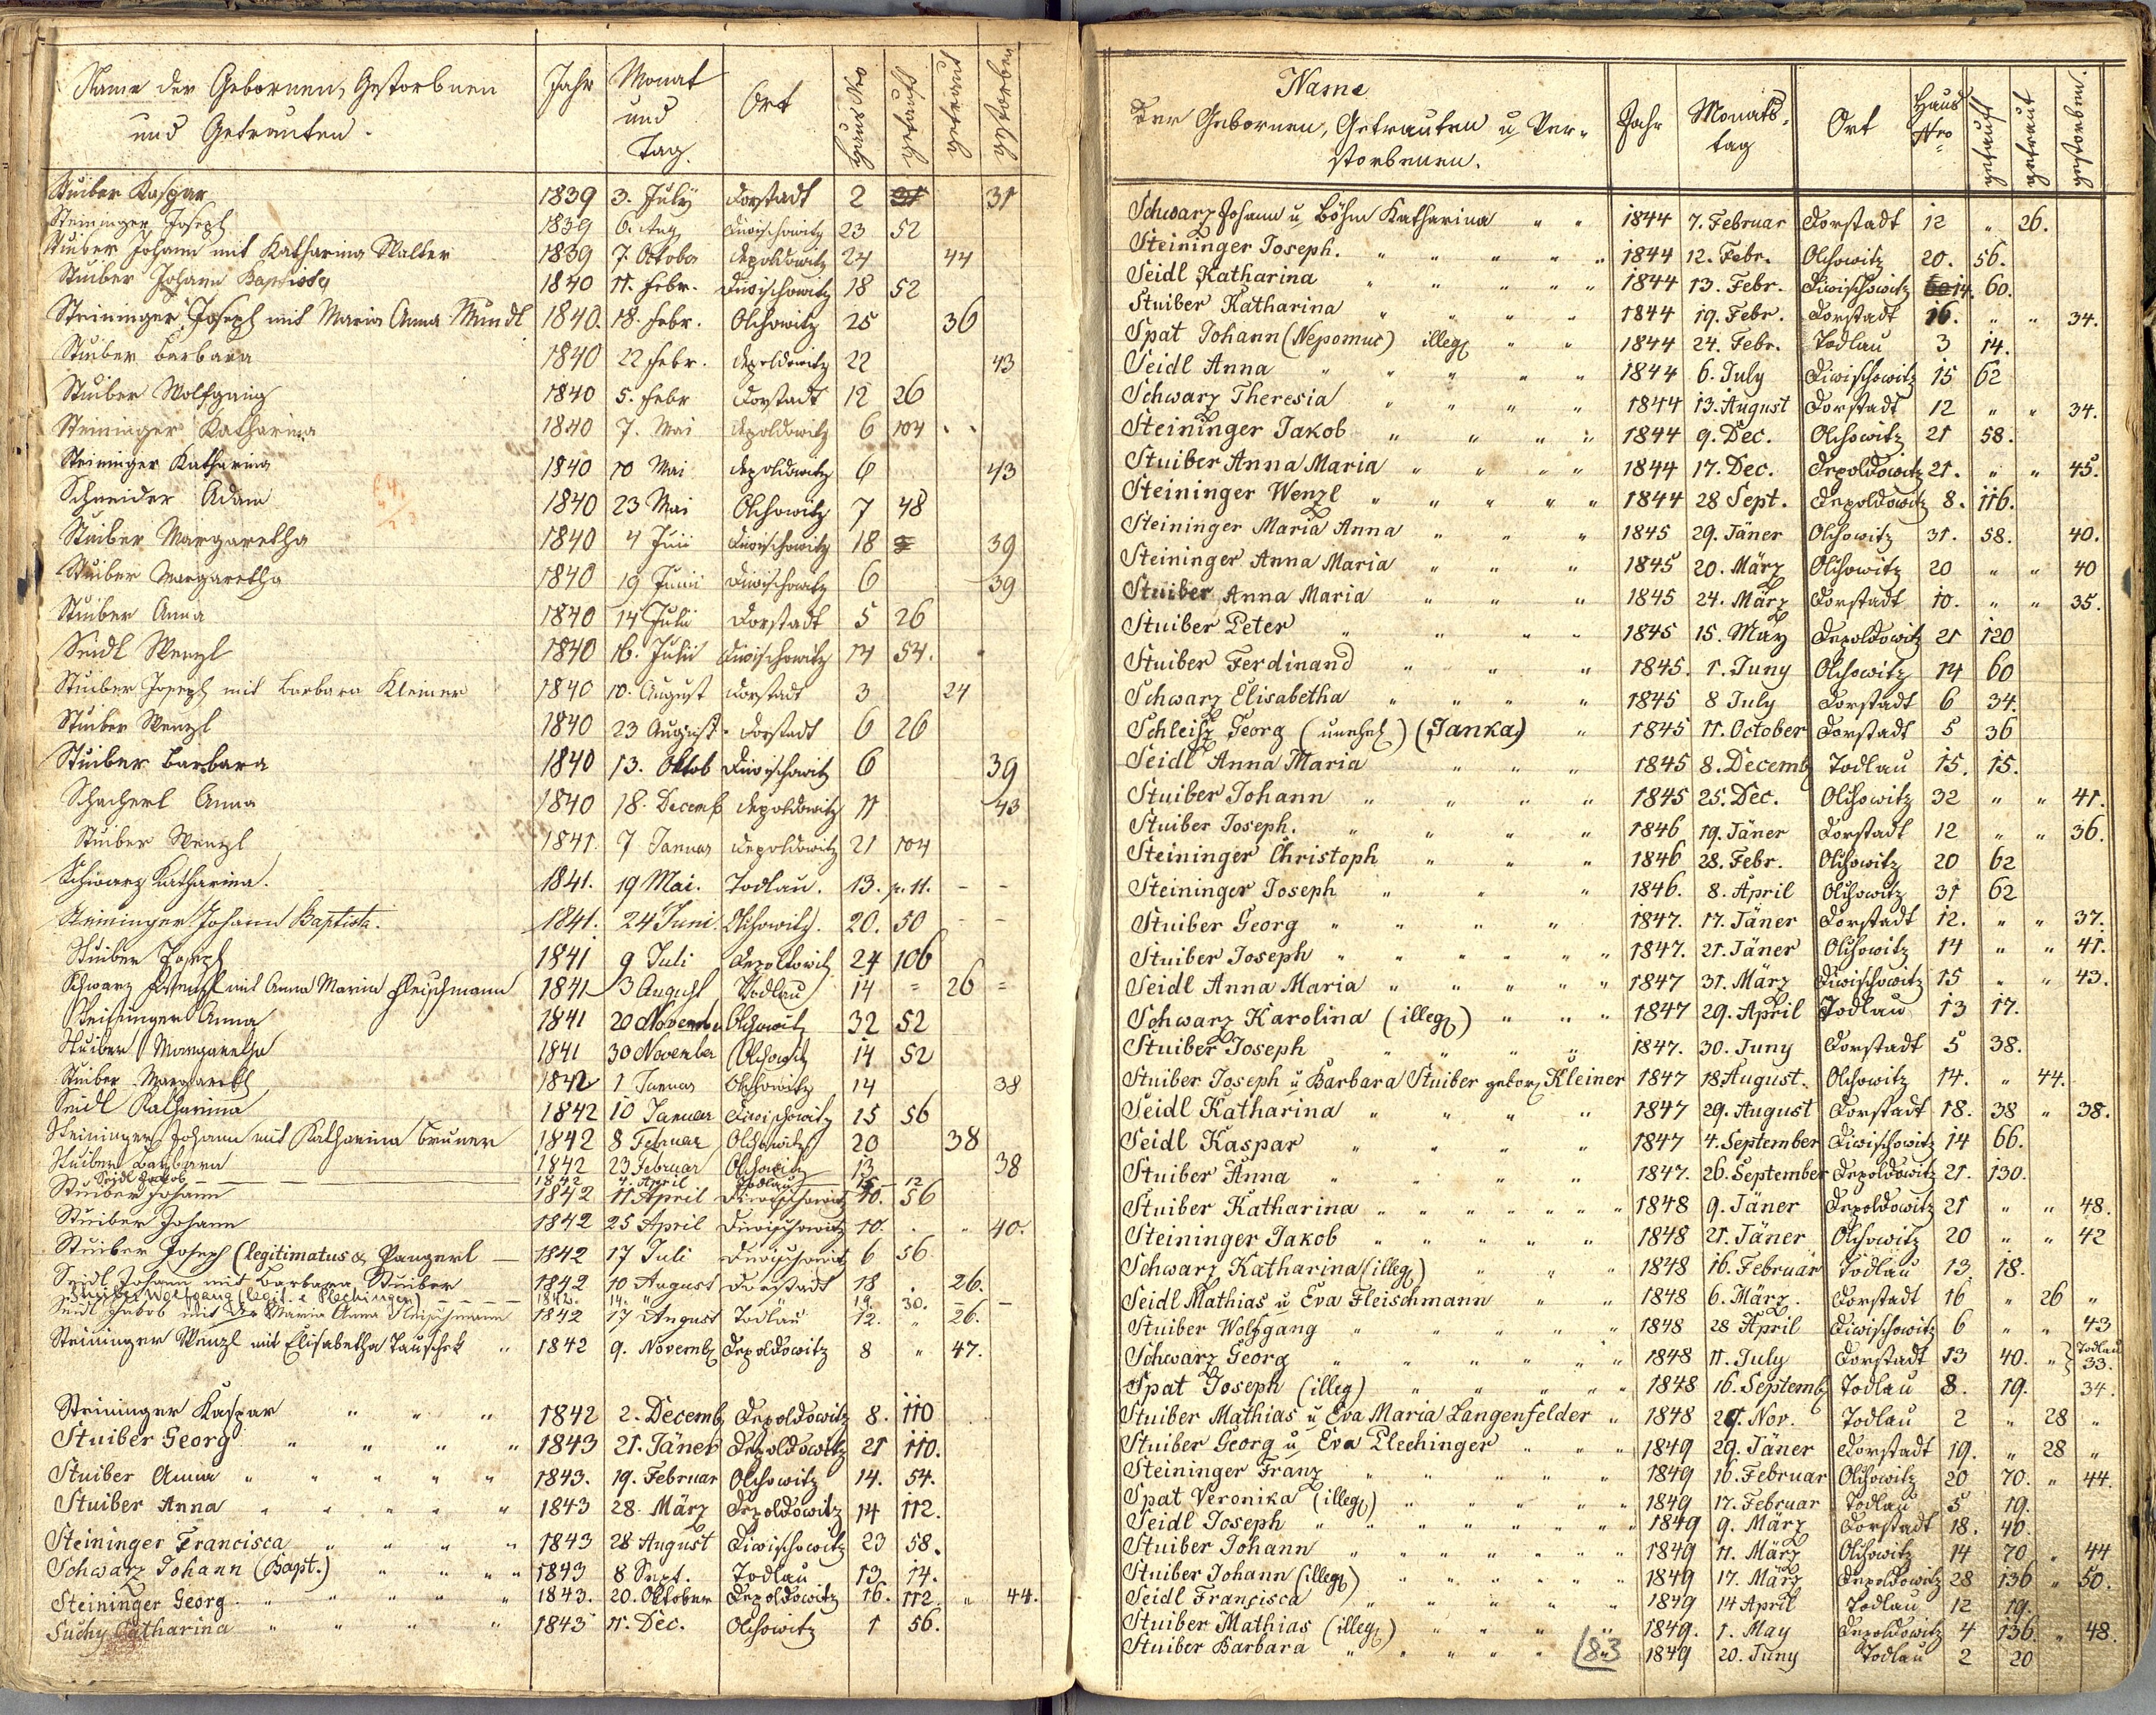 Name der Gebornen, Gestorbnen
und Getrauten.
Jahr
Monat
und
Tag.
Ort
Haus Nro
getauft
getraut
gestorben
Stuiber Kaspar 1839 3. July Dorstadt 2 31 31
Steininger Joseph 1839 6. Aug Diwischowitz 23 52
Stuiber Johann mit Katharina Walter 1839 7. October Depoldowitz 24 44
Stuiber Johann Baptista 1840 11. Febr. Diwischowitz 18 52
Steininger Joseph mit Maria Anna Mundl 1840. 18. Febr. Olchowitz 25 36
Stuiber Barbara 1840 22 Febr. Depoldowitz 22 43
Stuiber Wolfgang 1840 5. Febr Dorstadt 12 26
Steininger Katharina 1840 7. Mai Depoldowitz 6 104
Steininger Katharina 1840 10 Mai Depoldowitz 6 43
Schneider Adam 1840 23 Mai Olchowitz 7 48
Stuiber Margaretha 1840 4 Juni Diwischowitz 18 39
Stuiber Margaretha 1840 19 Junii Diwischowitz 6 39
Stuiber Anna 1840 14 Julii Dorstadt 5 26
Seidl Wenzl 1840 16. Julii Diwischowitz 14 54.
Stuiber Joseph mit Barbara Kleiner 1840 10. August Dorstadt 3 24
Stuiber Wenzl 1840 23 August. Dorstadt 6 26
Stuiber Barbara 1840 13. Oktob Diwischowitz 6 39
Schacherl Anna 1840 18. Decemb Depoldowitz 11 43
Stuiber Wenzl 1841. 7 Januar Depoldowitz 21 104
Schwarz Katharina. 1841. 19 Mai. Todlau. 13. p. 11. - -
Steininger Johann Baptista. 1841. 24 Juni. Olchowitz. 20. 50 - -
Stuiber Joseph 1841 9 Juli Depoltowitz 24 106
Schwarz Wenzl mit Anna Maria Fleischmann 1841 3 August Todlau 14 = 26 =
Steininger Anna 1841 20 November Olchowitz 32 52
Stuiber Margaretha 1841 30 November Olchowitz 14 52
Stuiber Margareth 1842 1 Januar Olchowitz 14 38
Seidl Katharina 1842 10 Januar Diwischowitz 15 56
Steininger Johann mit Katharina Bruner 1842 8 Februar Olchowitz 20 38
Stuiber Barbara 1842 23 Februar Olchowitz 13 38
Seidl Jakob 1842 4. April Todlau 15 12
Stuiber Johann 1842 11 April Diwischowitz 10. 56
Stuiber Johann 1842 25 April Diwischowitz 10. " 40.
Stuiber Joseph (legitimatus ex Pangerl 1842 17 Juli Diwischowitz 6 56
Seidl Johann mit Barbara Stuiber 1842 10 August Dorstadt 18 . 26.
Stuiber Wolfgang (legit. e Plechinger) 1842. 14. " 19. 30. -
Seidl Jakob mit Maria Anna Fleischmann 1842 17 August Todlau 12. " 26.
Steininger Wenzl mit Elisabetha Tauschek " 1842 9. Novemb Depoldowitz 8 " 47.
Steininger Kaspar " " " 1842 2. Decemb Depoldowitz 8. 110
Stuiber Georg " " " " 1843 21. Jäner Depoldowitz 21 110.
Stuiber Anna " " " " " 1843. 19. Februar Olchowitz 14. 54.
Stuiber Anna " " " " " 1843 28. März Depoldowitz 14 112.
Steininger Francisca " " " " 1843 28 August Diwischowitz 23 58.
Schwarz Johann (Bapt.) " " " " 1843 8 Sept. Todlau 13 14.
Steininger Georg " " " " " 1843. 20. Oktober Depoldowitz 16. 112. " 44.
Suchy Catharina " " " " 1843 11. Dec. Olchowitz 1 56.
Name
der Gebornen, Getrauten u. Ver-
storbenen.
Jahr
Monats-
tag
Ort
Haus
Nro
getauft
getraut
gestorben.
Schwarz Johann u. Böhm Katharina " " 1844 7. Februar Dorstadt 12 " 26.
Steininger Joseph. " " " " " 1844 12. Febr. Olchowitz 20. 56.
Seidl Katharina " " " " " 1844 13. Febr. Diwischowitz 14. 60.
Stuiber Katharina " " " " 1844 19. Febr. Dorstadt 16. " " 34.
Spat Johann (Nepomuc) illeg " " 1844 24. Febr. Todlau 3 14.
Seidl Anna " " " " " 1844 6. July Diwischowitz 15 62
Schwarz Theresia " " " " 1844 13. August Dorstadt 12 " " 34.
Steininger Jakob " " " " 1844 9. Dec. Olchowitz 21 58.
Stuiber Anna Maria " " " " 1844 17. Dec. Depoldowitz 21. " " 45.
Steininger Wenzl " " " " " 1844 28 Sept. Depoldowitz 8. 116.
Steininger Maria Anna " " " 1845 29. Jäner Olchowitz 31. 58. 40.
Steininger Anna Maria " " " 1845 20. März Olchowitz 20 " " 40
Stuiber Anna Maria " " " 1845 24. März Dorstadt 10. " " 35.
Stuiber Peter " " " " 1845 15. May Depoldowitz 21 120
Stuiber Ferdinand " " " 1845. 1. Juny Olchowitz 14 60
Schwarz Elisabetha " " " " 1845 8 July Dorstadt 6 34.
Schleis Georg (unehel) (Janka) " 1845 11. October Dorstadt 5 36
Seidl Anna Maria " " " 1845 8. Decemb Todlau 15. 15.
Stuiber Johann " " " " 1845 25. Dec. Olchowitz 32 " " 41.
Stuiber Joseph. " " " " 1846 19. Jäner Dorstadt 12 " " 36.
Steininger Christoph " " " 1846 28. Febr. Olchowitz 20 62
Steininger Joseph " " " 1846. 8. April Olchowitz 31 62
Stuiber Georg " " " " 1847. 17. Jäner Dorstadt 12. " " 37.
Stuiber Joseph " " " " " 1847. 21. Jäner Olchowitz 14 " " 41.
Seidl Anna Maria " " " " " 1847 31. März Diwischowitz 15 " " 43.
Schwarz Karolina (illeg) " " " 1847 29. April Todlau 13 17.
Stuiber Joseph " " " " 1847. 30. Juny Dorstadt 5 38.
Stuiber Joseph u. Barbara Stuiber gebor Kleiner 1847 18 August. Olchowitz 14. " 44.
Seidl Katharina " " " " 1847 29. August Dorstadt 18. 38 " 38.
Seidl Kaspar " " " " 1847 4. September Diwischowitz 14 66.
Stuiber Anna " " " " 1847. 26. September Depoldowitz 21. 130.
Stuiber Katharina " " " " " " 1848 9. Jäner Depoldowitz 21 " " 48.
Steininger Jakob " " " " " 1848 21. Jäner Olchowitz 20 " " 42
Schwarz Katharina (illeg) " " " 1848 16. Februar Todlau 13 18.
Seidl Mathias u. Eva Fleischmann " " 1848 6. März. Dorstadt 16 " 26 "
Stuiber Wolfgang " " " " " 1848 28 April Diwischowitz 6 " " 43
Schwarz Georg " " " " " " 1848 11. July Dorstadt 13 40. " } Todlau 33.
Spat Joseph (illeg) " " " " " 1848 16. Septemb Todlau 8. 19. 34.
Stuiber Mathias u. Eva Maria Langenfelder " 1848 21. Nov. Todlau 2 " 28 "
Stuiber Georg u. Eva Plechinger " " " 1849 29. Jäner Dorstadt 19. " 28 "
Steininger Franz " " " " " 1849 16. Februar Olchowitz 20 70. " 44.
Spat Veronika (illeg) " " " " 1849 17. Februar Todlau 5 19.
Seidl Joseph " " " " " " " 1849 9. März Dorstadt 18. 40.
Stuiber Johann " " " " " " " 1849 11. März Olchowitz 14 70 " 44
Stuiber Johann (illeg) " " " " " 1849 17. März Depoldowitz 28 136 " 50.
Seidl Francisca " " " " " 1849 14 April Todlau 12 19.
Stuiber Mathias (illeg) " " " " 1849. 1. May Depoldowitz 4 136. " 48.
Stuiber Barbara " " " " " 1849 20. Juny Todlau 2 20
83